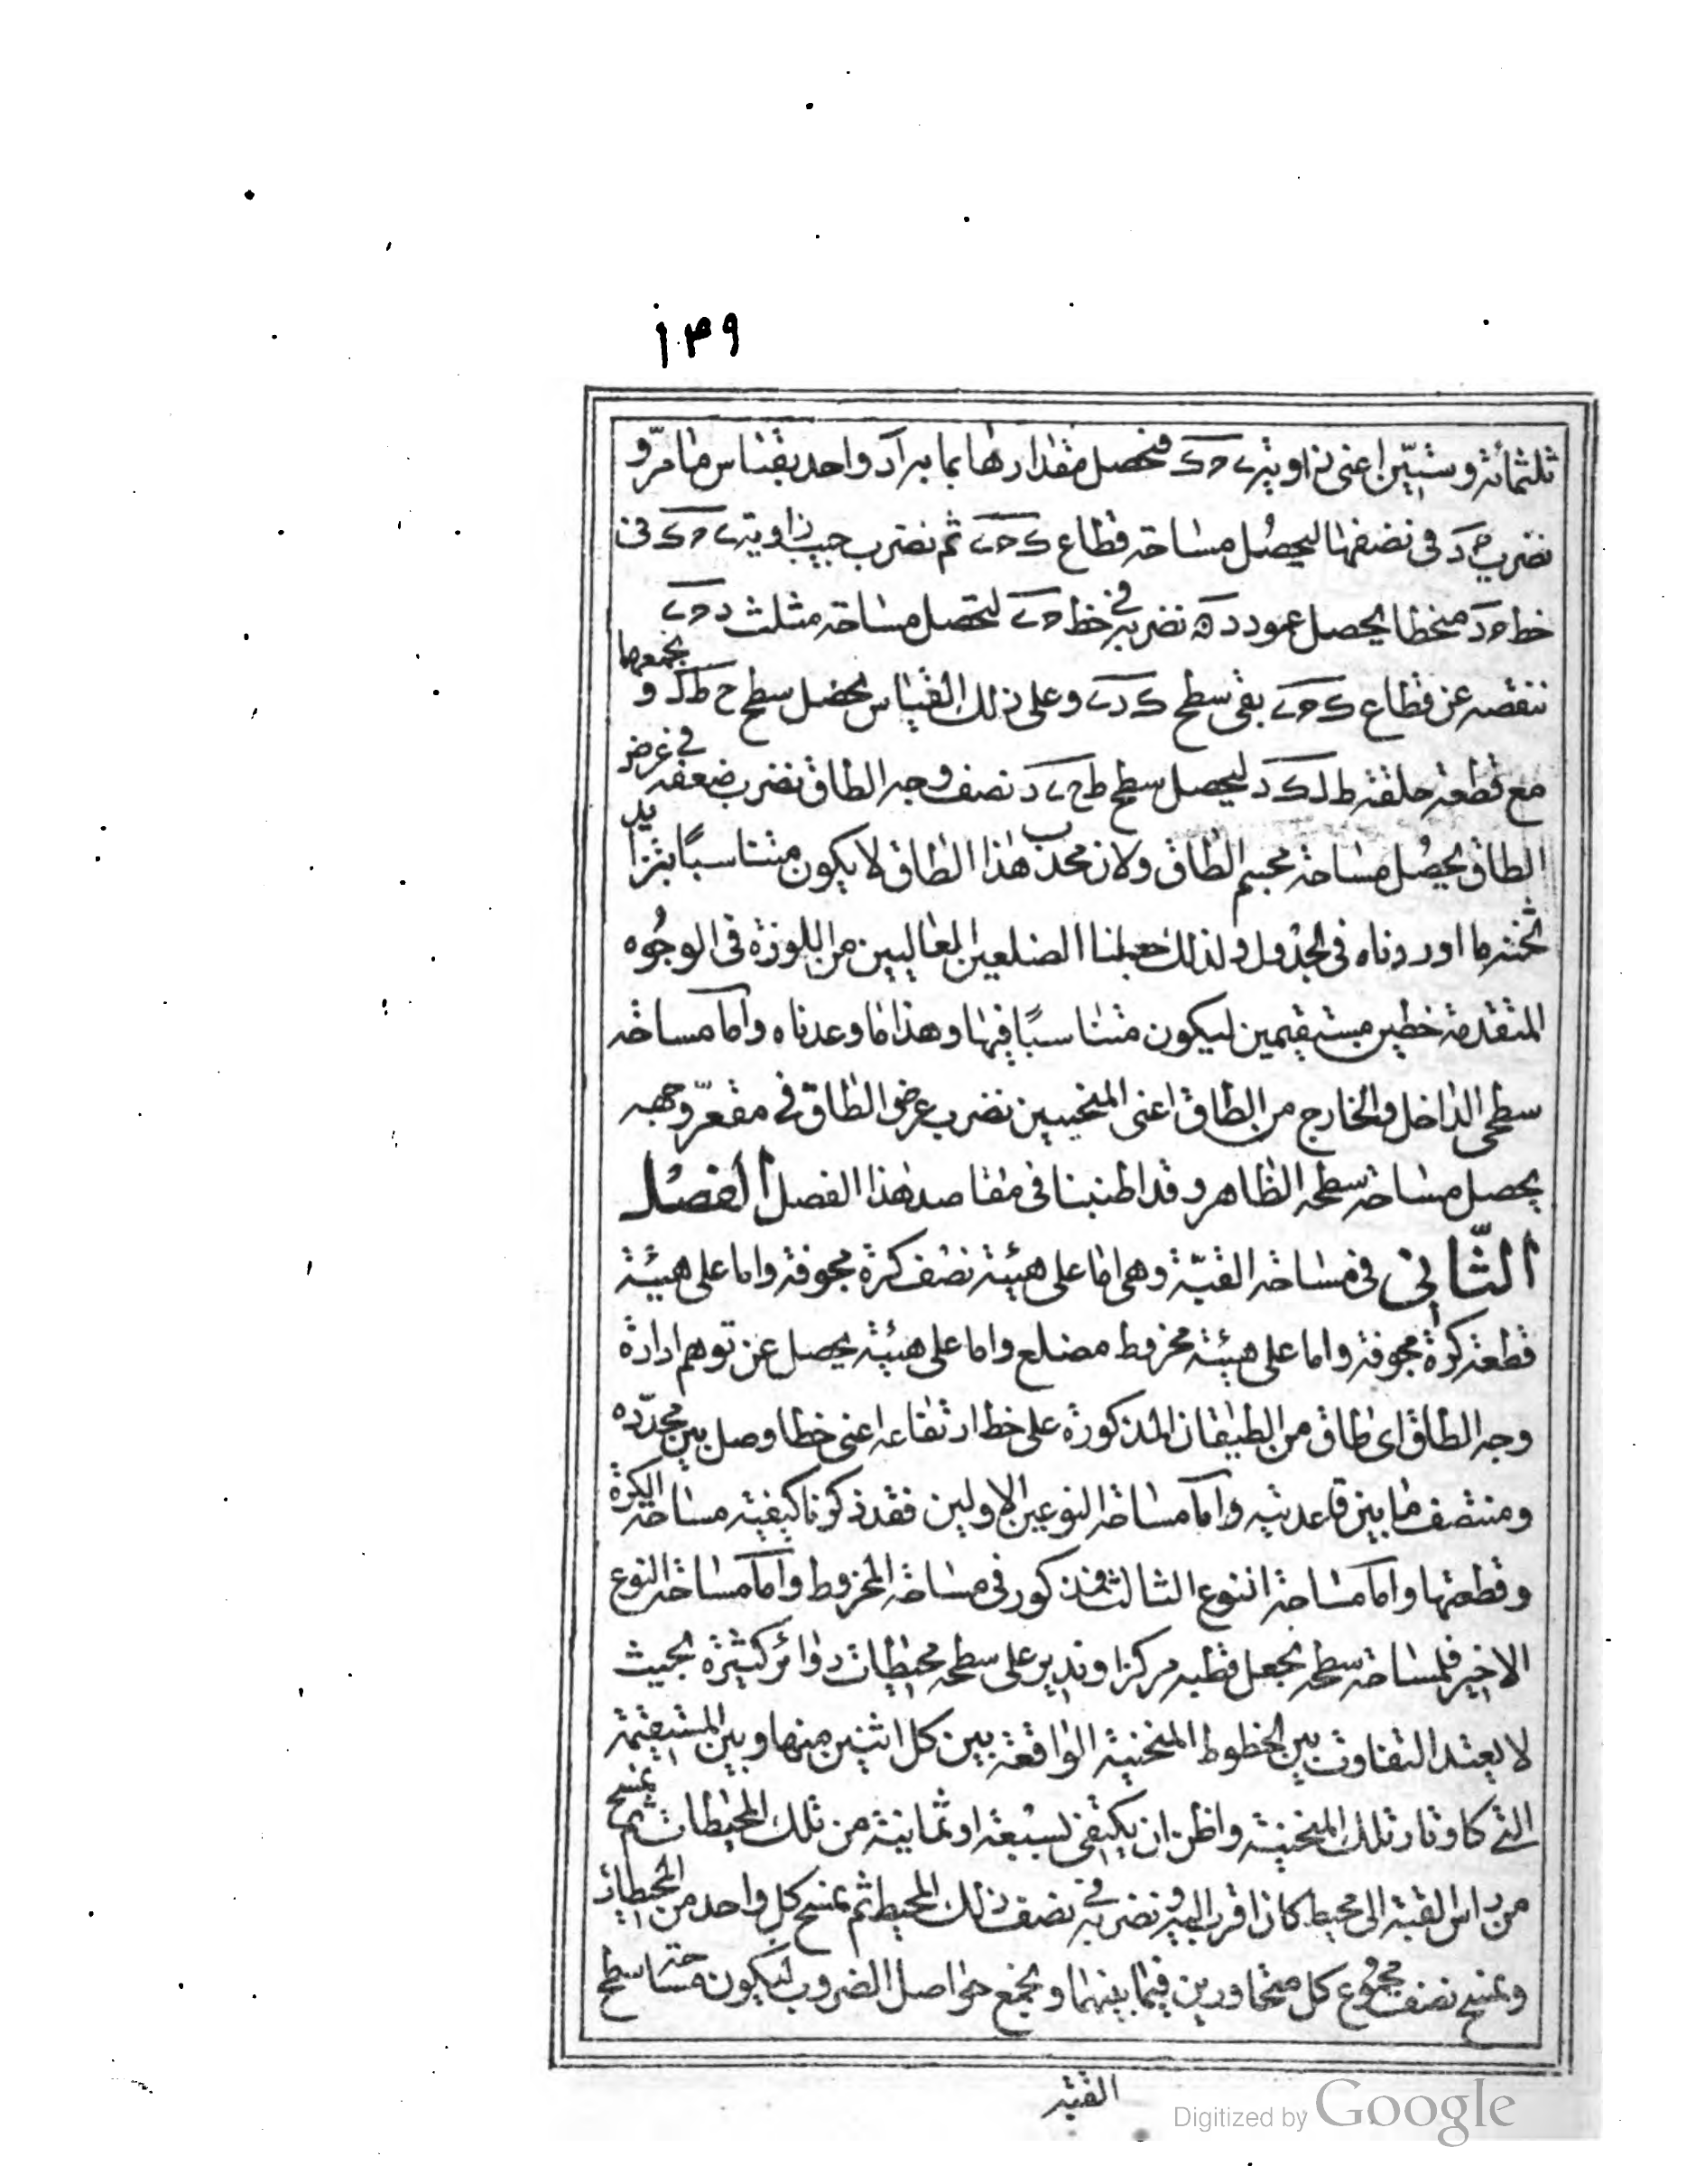 ١٣٩
ثلثمائة وستين اعنى زاوية ى ح ك فنحصل مقدارها بما به ا د واحد بقياس ما مرّ و
نضرب ح د فى نصفها ليحصل مساحة قطاع ك ح ى ثم نضرب جيب زاوية ى ح ك فى
خط ح د منحطا يحصل عمود د ه نضربه فى خط ح ى لتحصل مساحة مثلث د ح ى
ننقصه عن قطاع ك ح ى بقى سطح ك د ى وعلى ذلك القياس يحصل سطح ح ط ل ونجمعهما
مع قطعة حلقة ط ل ك د ليحصل سطح ط ح ى د نصف وجه الطاق نضرب ضعفه فى عرض
الطاق يحصل مساحة مجسم الطاق ولان محدب هذا الطاق لا يكون متناسبا بتزايد
ثخنه ما اوردناه فى الجدول ولذلك جعلنا الضلعين العاليين من اللوزة فى الوجوه
المتقدمة خطين مستقيمين ليكون متناسبًا فيها وهذا ما وعدناه واما مساحة
سطحى الداخل والخارج من الطاق اعنى المنحنيين نضرب عرض الطاق فى مقعّر وجهه
يحصل مساحة سطحه الظاهر وقد اطنبنا فى مقاصد هذا الفصل الفصل
الثّانى فى مساحة القبّة وهى اما على هيئة نصف كرة مجوفة واما على هيئة
قطعة كرة مجوفة واما على هيئة مخروط مضلع واما على هيئة يحصل عن توهم ادارة
وجه الطاق اى طاق من الطيقان المذكورة على خط ارتفاعه اعنى خطا وصل بين محدّده
ومنتصف ما بين قاعدتيه واما مساحة النوعين الاولين فقد ذكرنا كيفية مساحة الكرة
وقطعتها واما مساحة النوع الثالث فمذكور فى مساحة المخروط واما مساحة النوع
الاخير فلمساحة سطحه نجعل قطبه مركزا وندير على سطحه محيطات دوائر كثيرة بحيث
لا يعتد التفاوت بين الخطوط المنحنية الواقعة بين كل اثنين منها وبين المستقيمة
التى كاوتار تلك المنحنية واظن ان يكتفى بسبعة او ثمانية من تلك المحيطات ثم نمسح
من راس القبة الى محيط كان اقرب اليه ونضربه فى نصف ذلك المحيط ثم نمسح كل واحد من المحيطات
ونمسح نصف مجموع كل متجاورين فيما بينهما ونجمع حواصل الضروب ليكون مساحة سطح
القبة
Digitized by Google